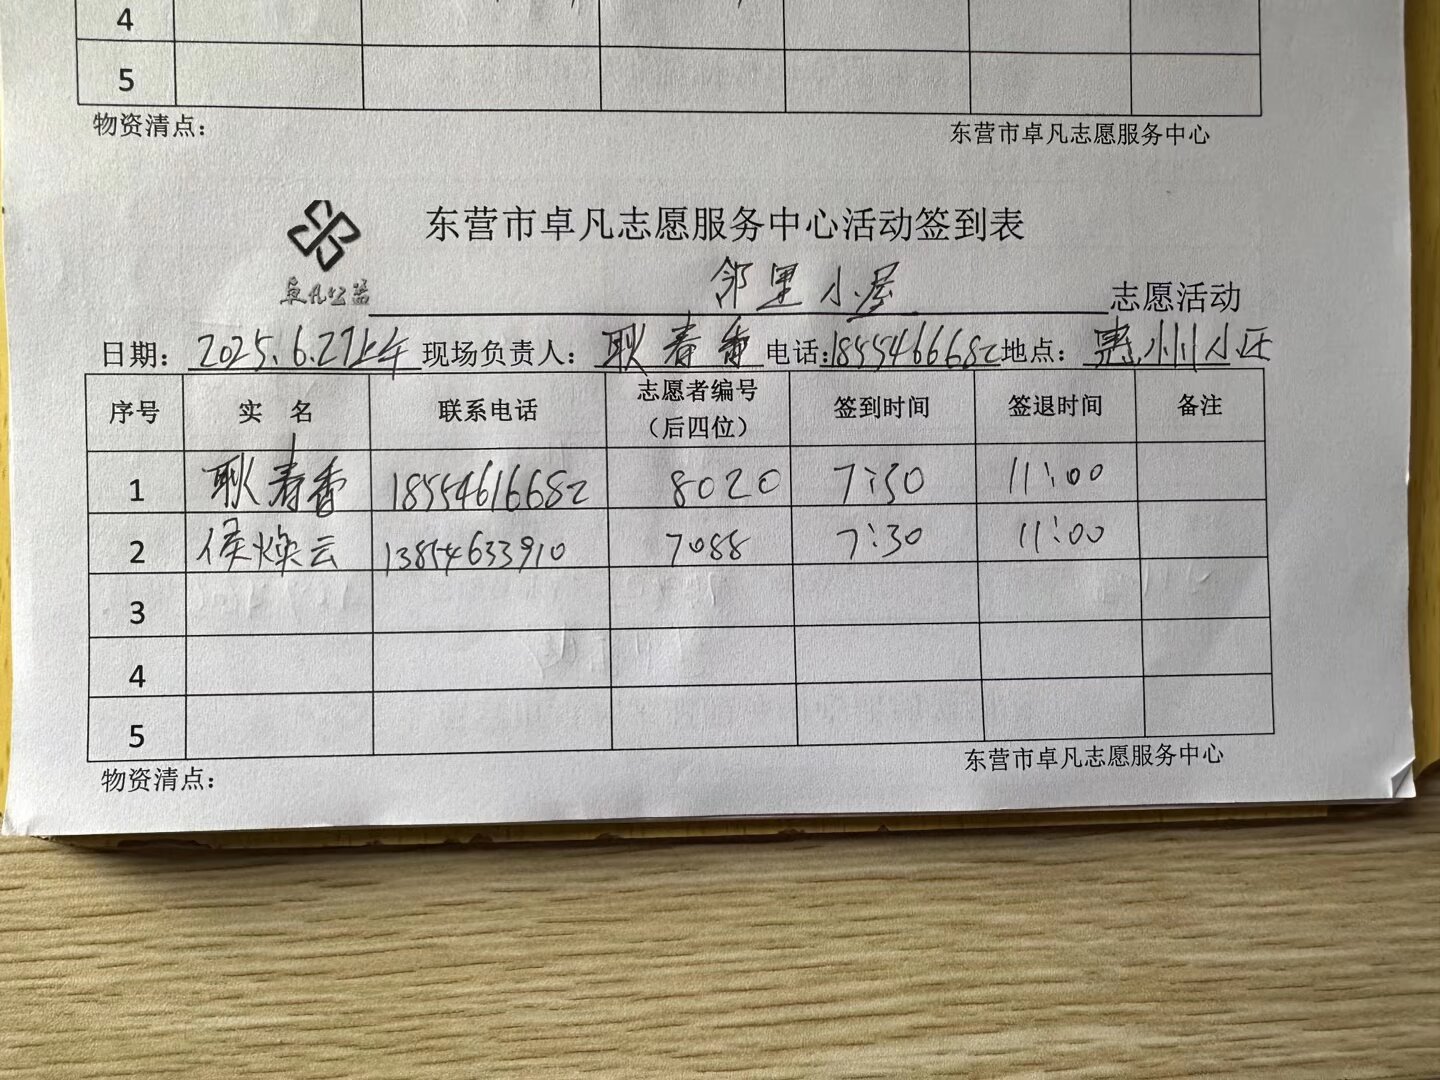 4
5
物资清点：
东营市卓凡志愿服务中心
东营市卓凡志愿服务中心活动签到表
卓凡公益
邻里小屋 志愿活动
日期：2025.6.27上午 现场负责人：耿春香 电话：18554616682 地点：惠州小区
序号 实 名 联系电话 志愿者编号（后四位） 签到时间 签退时间 备注
1 耿春香 18554616682 8020 7:30 11:00
2 侯焕云 13854633910 7088 7:30 11:00
3
4
5
物资清点：
东营市卓凡志愿服务中心